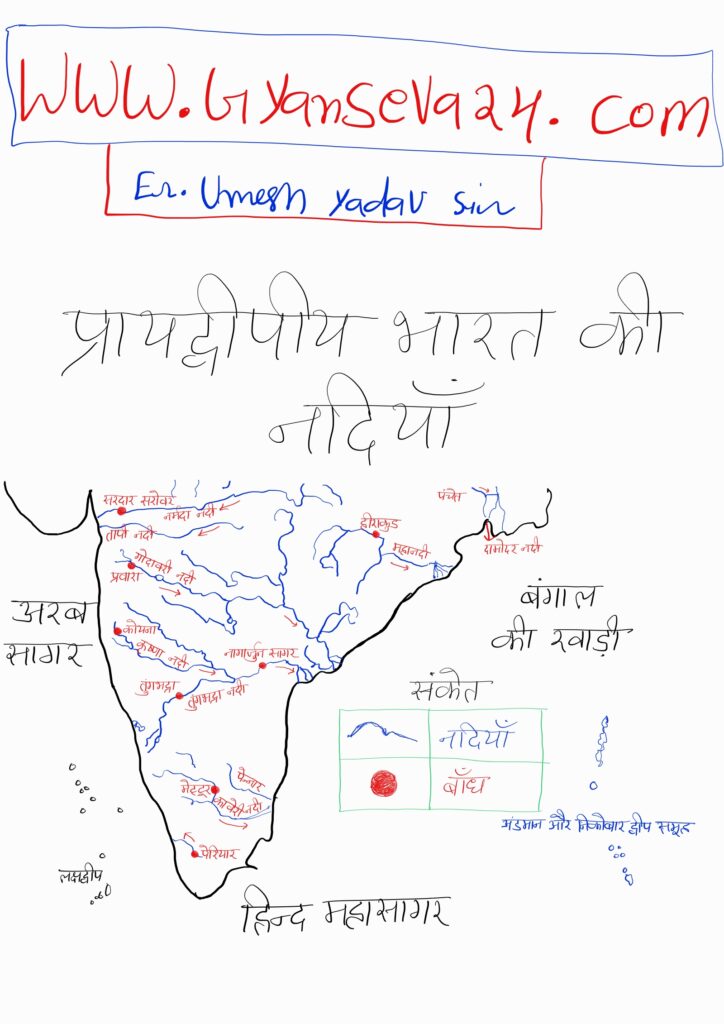 WWW.Gyanseva24.com
Er. Umesh Yadav Sir
प्रायद्वीपीय भारत की
नदियाँ
सरदार सरोवर
नर्मदा नदी
तापी नदी
गोदावरी नदी
प्रवारा
हीराकुड
महानदी
पंचेत
दामोदर नदी
अरब
सागर
बंगाल
की खाड़ी
कोयना
कृष्णा नदी
नागार्जुन सागर
तुंगभद्रा
तुंगभद्रा नदी
संकेत
नदियाँ
बाँध
मेटटूर
पेन्नार
कावेरी नदी
पेरियार
लक्षद्वीप
अंडमान और निकोबार द्वीप समूह
हिन्द महासागर